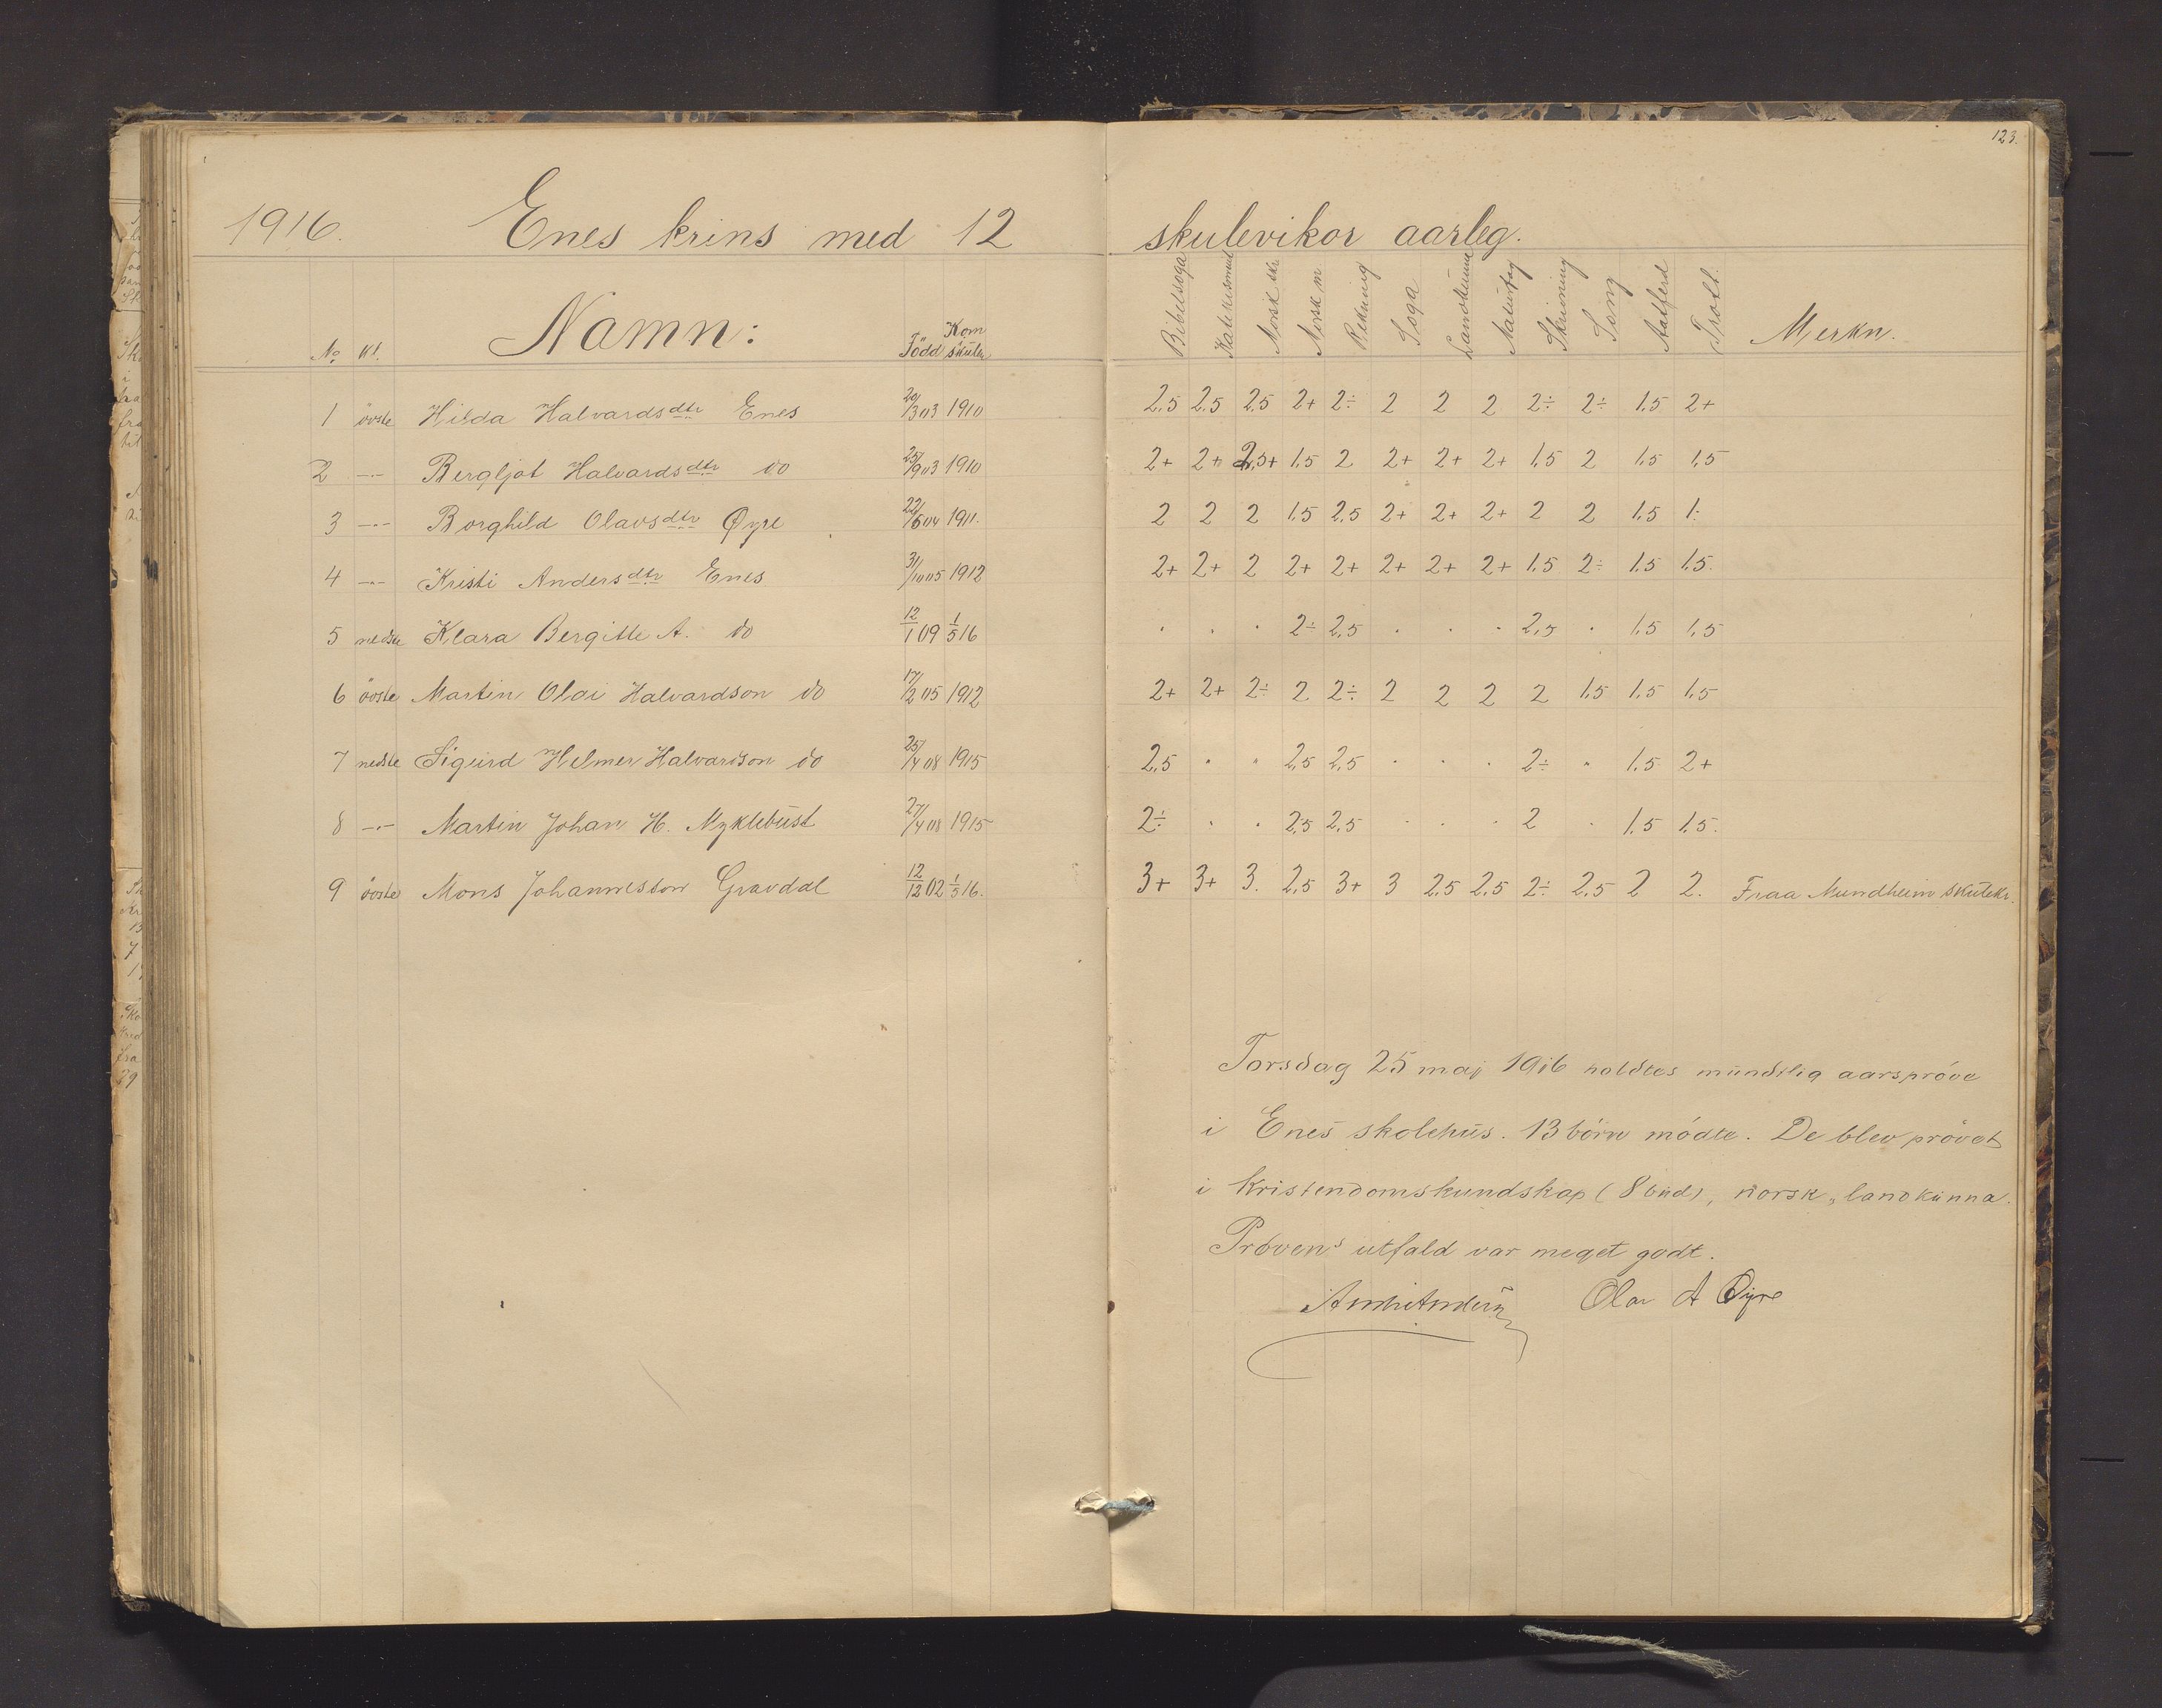 123.
1916. Enes krins med 12 skulevikor aarleg.
No Kl. Namn: Född Kom i skulen Bibelsoga Katekismus Norsk skr Norsk m Rekning Soga Landkunna Naturfag Skrivning Song Aatferd Trott. Merkn.
1 övste Hilda Halvardsdtr Enes 29/3 03 1910 2,5 2,5 2,5 2+ 2÷ 2 2 2 2÷ 2÷ 1,5 2+
2 —"— Bergljot Halvardsdtr do 25/9 03 1910 2+ 2+ 2,5+ 1,5 2 2+ 2+ 2+ 1,5 2 1,5 1,5
3 —"— Borghild Olavsdtr Øyre 22/6 04 1911. 2 2 2 1,5 2,5 2+ 2+ 2+ 2 2 1,5 1÷
4 —"— Kristi Andersdtr Enes 31/10 05 1912 2+ 2+ 2 2+ 2+ 2+ 2+ 2+ 1,5 2÷ 1,5 1,5.
5 nedste Klara Bergitte A. do 12/1 09 1/5 16 . . . 2÷ 2,5 . . . 2,5 . 1,5 1,5
6 övste Martin Olai Halvardson do 17/2 05 1912 2+ 2+ 2÷ 2 2÷ 2 2 2 2 1,5 1,5 1,5
7 nedste Sigurd Helmer Halvardson do 25/4 08 1915 2,5 . . 2,5 2,5 . . . 2÷ . 1,5 2+
8 —"— Martin Johan H. Myklebust 27/4 08 1915 2÷ . . 2,5 2,5 . . . 2 . 1,5 1,5.
9 övste Mons Johannesson Gravdal 12/12 02 1/5 16. 3+ 3+ 3. 2,5 3+ 3 2,5 2,5 2÷ 2,5 2 2. Fraa Mundheim skulekr.
Torsdag 25 mai 1916 holdtes mundtlig aarspröve
i Enes skolehus. 13 börn mödte. De blev prövet
i Kristendomskundskap (8 bud), norsk, landkunna.
Prövens utfald var meget godt.
Olav A Øyre